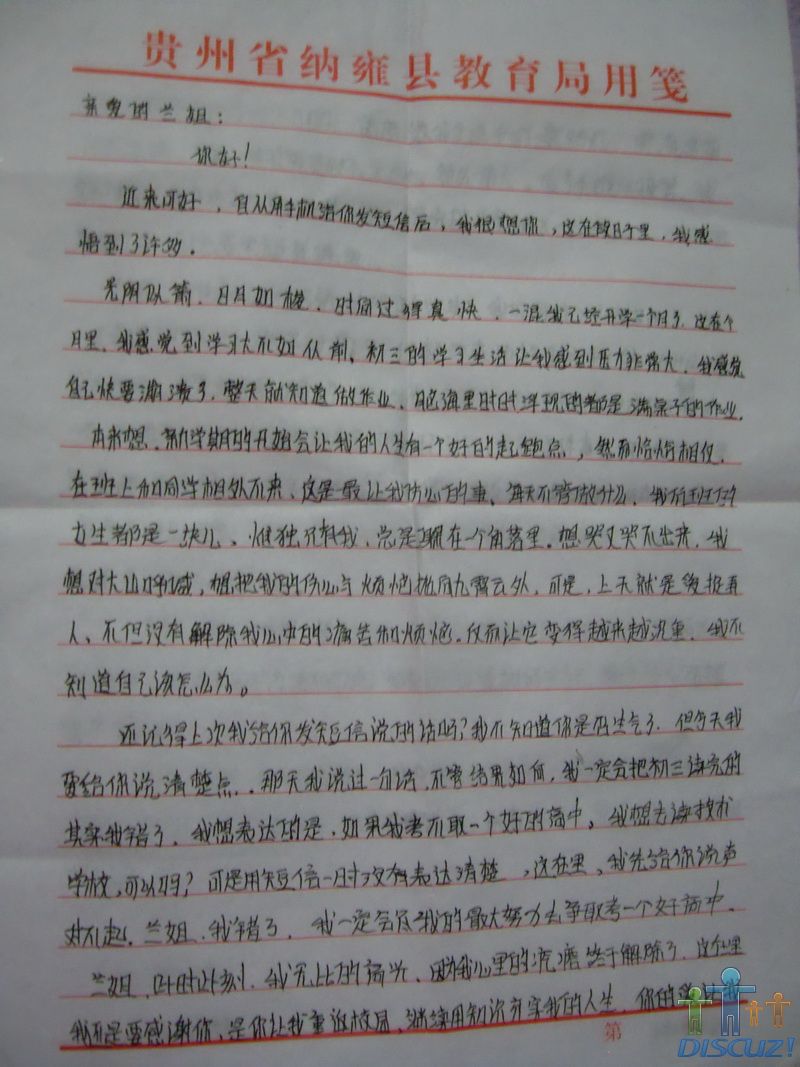 贵州省纳雍县教育局用笺
亲爱的兰姐：
你好！
近来可好，自从用手机给你发短信后，我很想你，这在段日子里，我感
悟到了许多。
光阴似箭，日月如梭，时间过得真快，一混我已经开学一个月了，这在个
月里，我感觉到学习大不如从前，初三的学习生活让我感到压力非常大，我感觉
自己快要崩溃了，整天就知道做作业、脑海里时时浮现的都是满桌子的作业。
本来想，新学期的开始会让我的人生有一个好的起跑点，然而恰恰相反，
在班上和同学相处不来，这是最让我伤心的事，每天不管做什么，我们班的
女生都是一块儿、惟独只有我，总是躲在一个角落里。想哭又哭不出来，我
想对大山呼喊，想把我的伤心与烦恼抛向九霄云外，可是，上天就是爱捉弄
人、不但没有解除我心中的痛苦和烦恼。反而让它变得越来越沉重，我不
知道自己该怎么办。
还记得上次我给你发短信说的话吗？我不知道你是否生气了，但今天我
要给你说清楚点，那天我说过一句话，不管结果如何，我一定会把初三读完的
其实我错了，我想表达的是，如果我考不取一个好的高中，我想去读技术
学校，可以吗？可是用短信一时没有表达清楚，这在里、我先给你说声
对不起，兰姐，我错了，我一定会尽我的最大努力去争取考一个好高中，
兰姐，此时此刻，我无比的高兴、因为我心里的终于解除了，这在里
我还是要感谢你，是你让我重返校园，继续用知识充实我的人生，你的
第
DISCUZ!